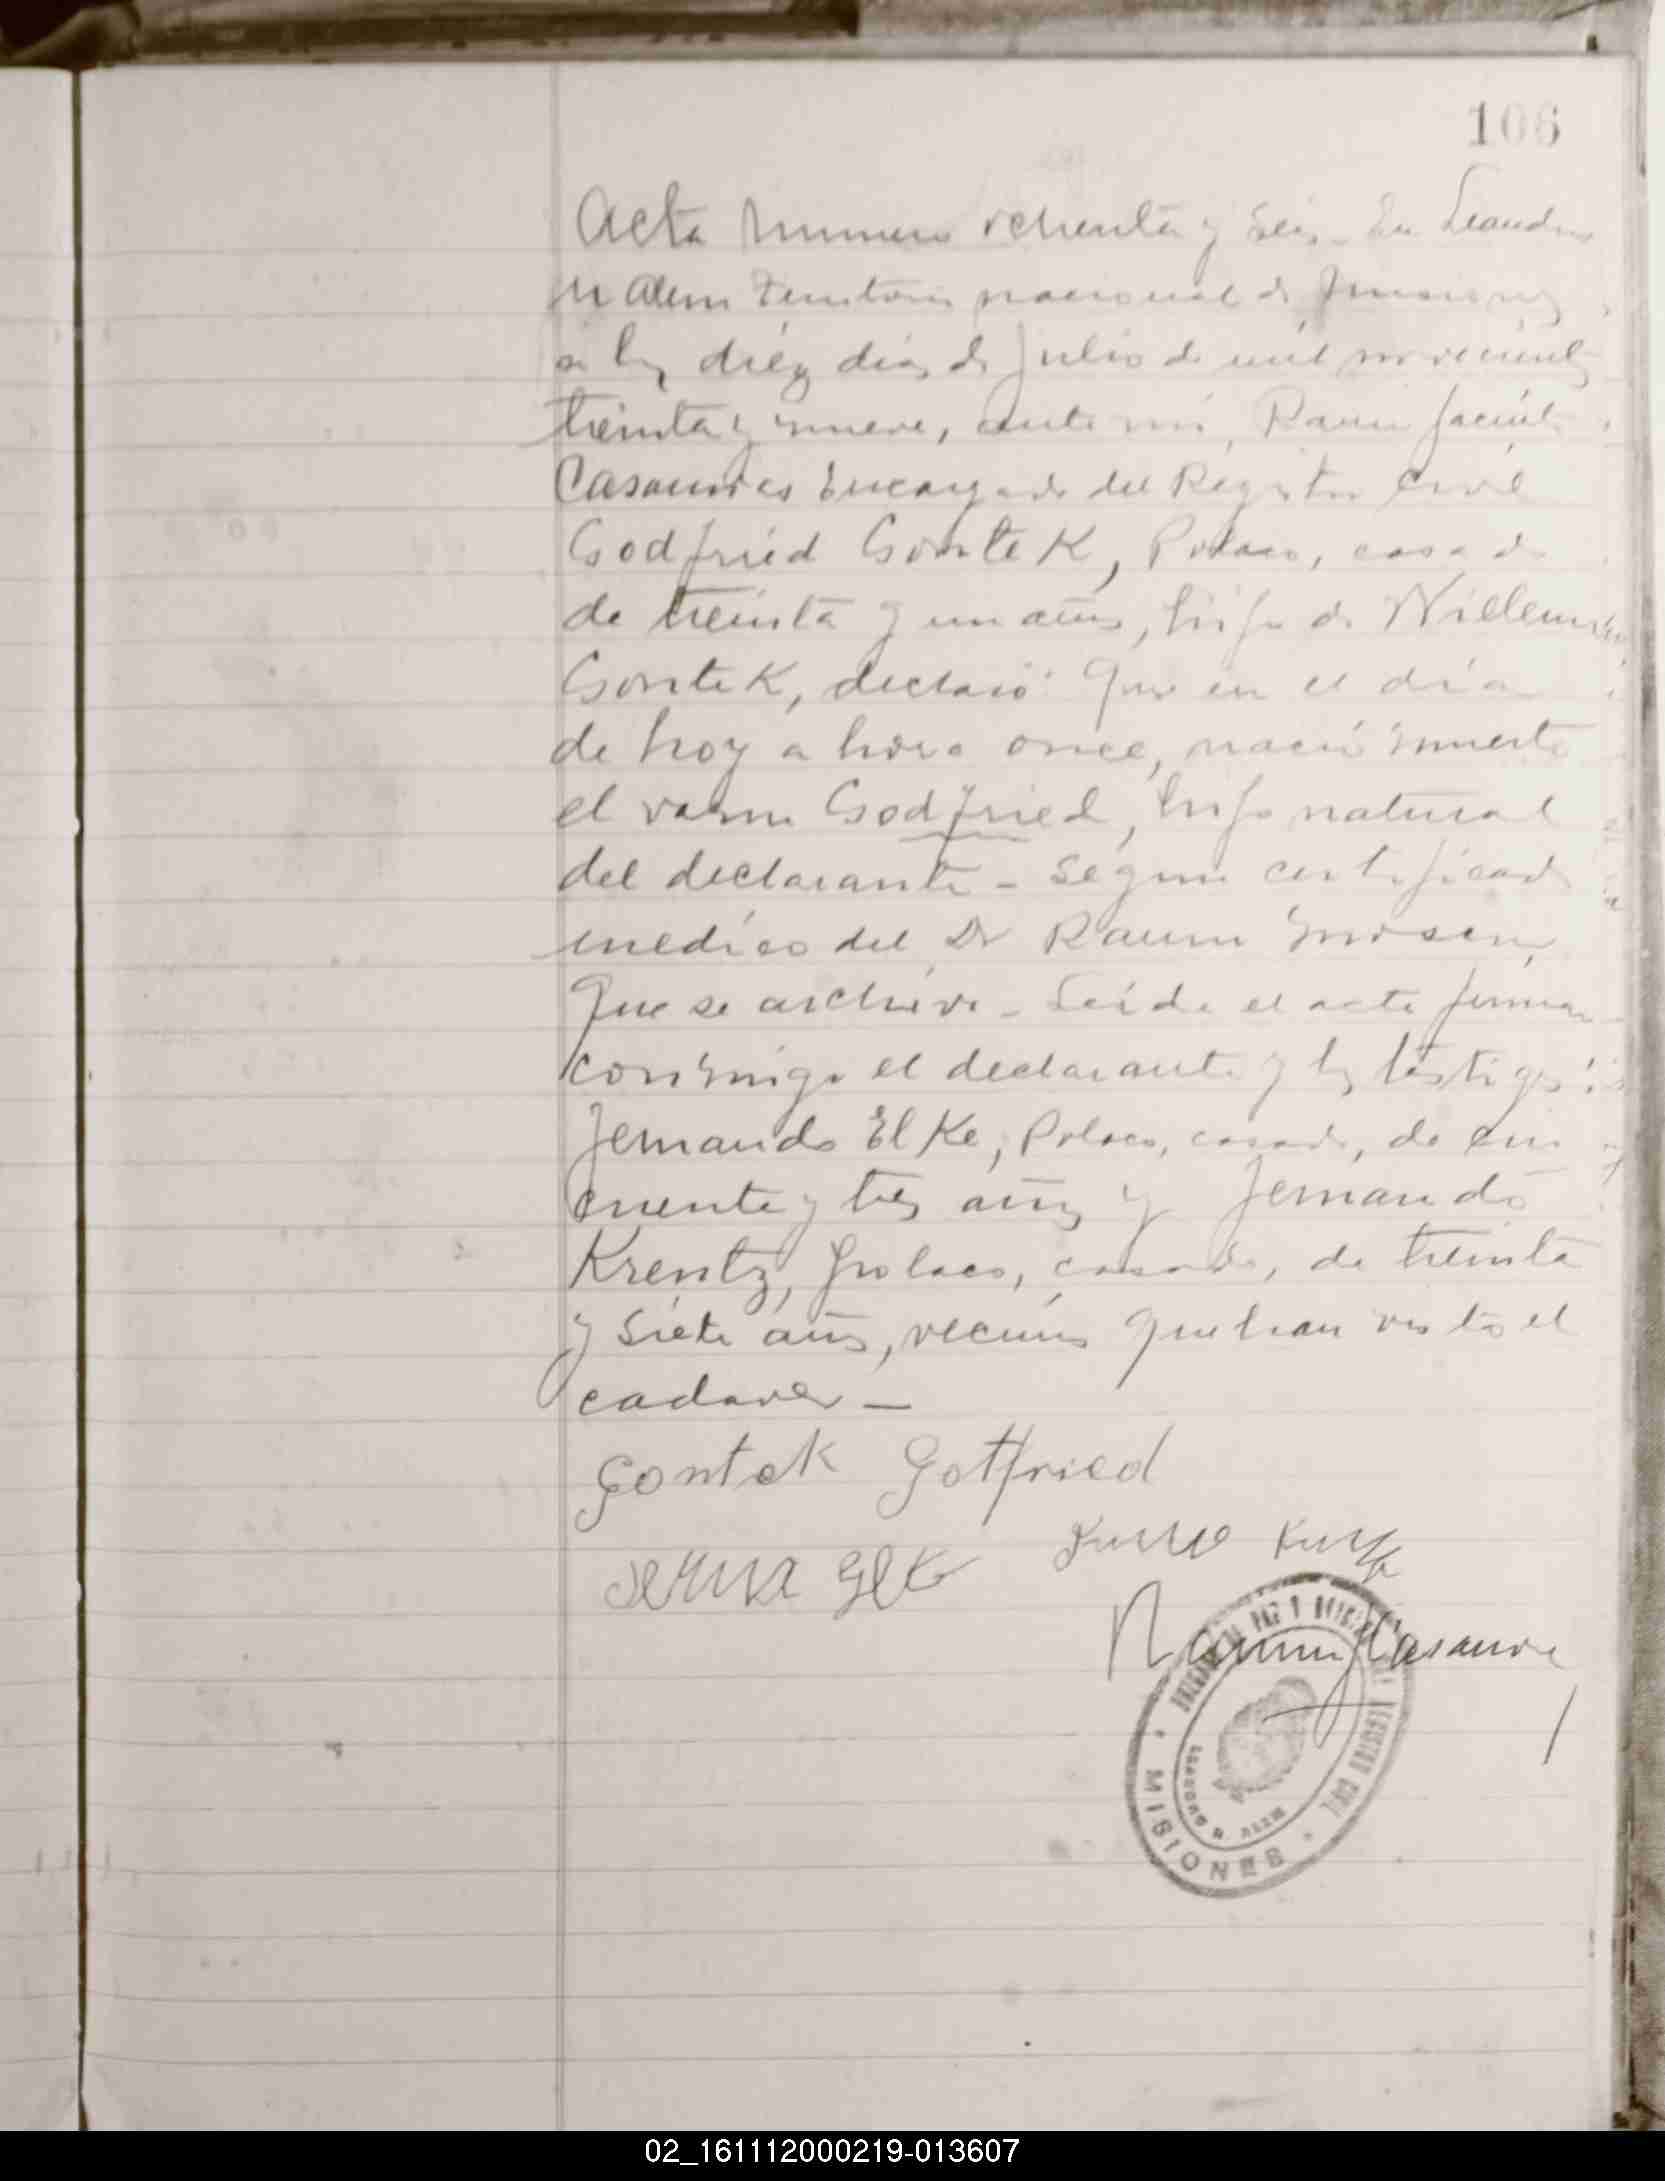 106
Acta numero ochenta y seis - En Leandro
N Alem Territorio nacional de Misiones
a los diéz días de Julio de mil novecientos
treinta y nueve, ante mí, Ramon Jacinto
Casanovas Encargado del Registro Civil
Godfried Gontek, Polaco, casado
de treinta y un años, hijo de
Gontek, declaró: Que en el día
de hoy a hora once, nació muerto
el varon Godfried, hijo natural
del declarante - Segun certificado
medico del Dr Ramon
que se archiva - Leída el acta firman
conmigo el declarante y los testigos:
Fernando Elke, Polaco, casado, de cin
cuenta y tres años y Fernando
Krentz, polaco, casado, de treinta
y siete años, vecinos que han visto el
cadaver -
Gontek Gotfried
Ramon J Casanova
REGISTRO CIVIL
LEANDRO N ALEM
MISIONES
02_161112000219-013607